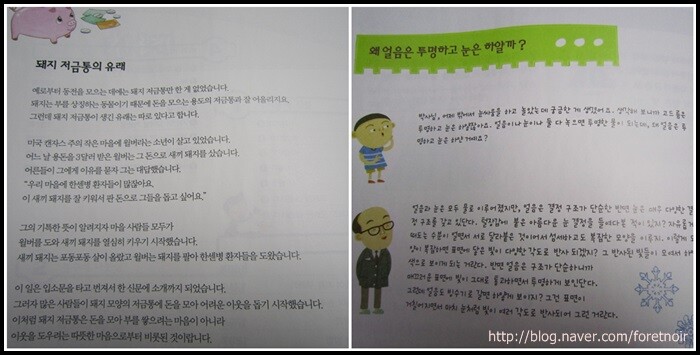 돼지 저금통의 유래
예로부터 동전을 모으는 데에는 돼지 저금통만 한 게 없었습니다.
돼지는 부를 상징하는 동물이기 때문에 돈을 모으는 용도의 저금통과 잘 어울리지요.
그런데 돼지 저금통이 생긴 유래는 따로 있다고 합니다.
미국 캔자스 주의 작은 마을에 윌버라는 소년이 살고 있었습니다.
어느 날 용돈을 3달러 받은 윌버는 그 돈으로 새끼 돼지를 샀습니다.
어른들이 그에게 이유를 묻자 그는 대답했습니다.
"우리 마을에 한센병 환자들이 많잖아요.
이 새끼 돼지를 잘 키워서 판 돈으로 그들을 돕고 싶어요."
그의 기특한 뜻이 알려지자 마을 사람들 모두가
윌버를 도와 새끼 돼지를 열심히 키우기 시작했습니다.
새끼 돼지는 포동포동 살이 올랐고 윌버는 돼지를 팔아 한센병 환자들을 도왔습니다.
이 일은 입소문을 타고 번져서 한 신문에 소개까지 되었습니다.
그러자 많은 사람들이 돼지 모양의 저금통에 돈을 모아 어려운 이웃을 돕기 시작했습니다.
이처럼 돼지 저금통은 돈을 모아 부를 쌓으려는 마음이 아니라
이웃을 도우려는 따뜻한 마음으로부터 비롯된 것이랍니다.
왜 얼음은 투명하고 눈은 하얄까?
박사님, 어제 밖에서 눈싸움을 하고 놀았는데 궁금한 게 생겼어요. 생각해 보니까 고드름은
투명하고 눈은 하얗잖아요. 얼음이나 눈이나 둘 다 녹으면 투명한 물이 되는데, 왜 얼음은 투
명하고 눈은 하얀 거예요?
얼음과 눈은 모두 물로 이루어졌지만, 얼음은 결정 구조가 단순한 반면 눈은 매우 다양한 결
정 구조를 갖고 있단다. 털장갑에 붙은 아름다운 눈 결정을 들여다본 적이 있지? 자유롭게
떠도는 수분이 얼면서 서로 달라붙은 것이어서 섬세하고도 복잡한 모양을 이루지. 이렇게 모
양이 복잡하면 표면에 닿은 빛이 다양한 각도로 반사 되겠지? 그 반사된 빛들이 모여서 하
색으로 보이게 되는 거란다. 반면 얼음은 구조가 단순하니까
매끄러운 표면에 빛이 그대로 통과하면서 투명하게 보인단다.
그런데 얼음도 빙수기로 갈면 하얗게 보이지? 그건 표면이
거칠어지면서 마치 눈처럼 빛이 여러 각도로 반사되어 그런 거란다.
http://blog.naver.com/foretnoir